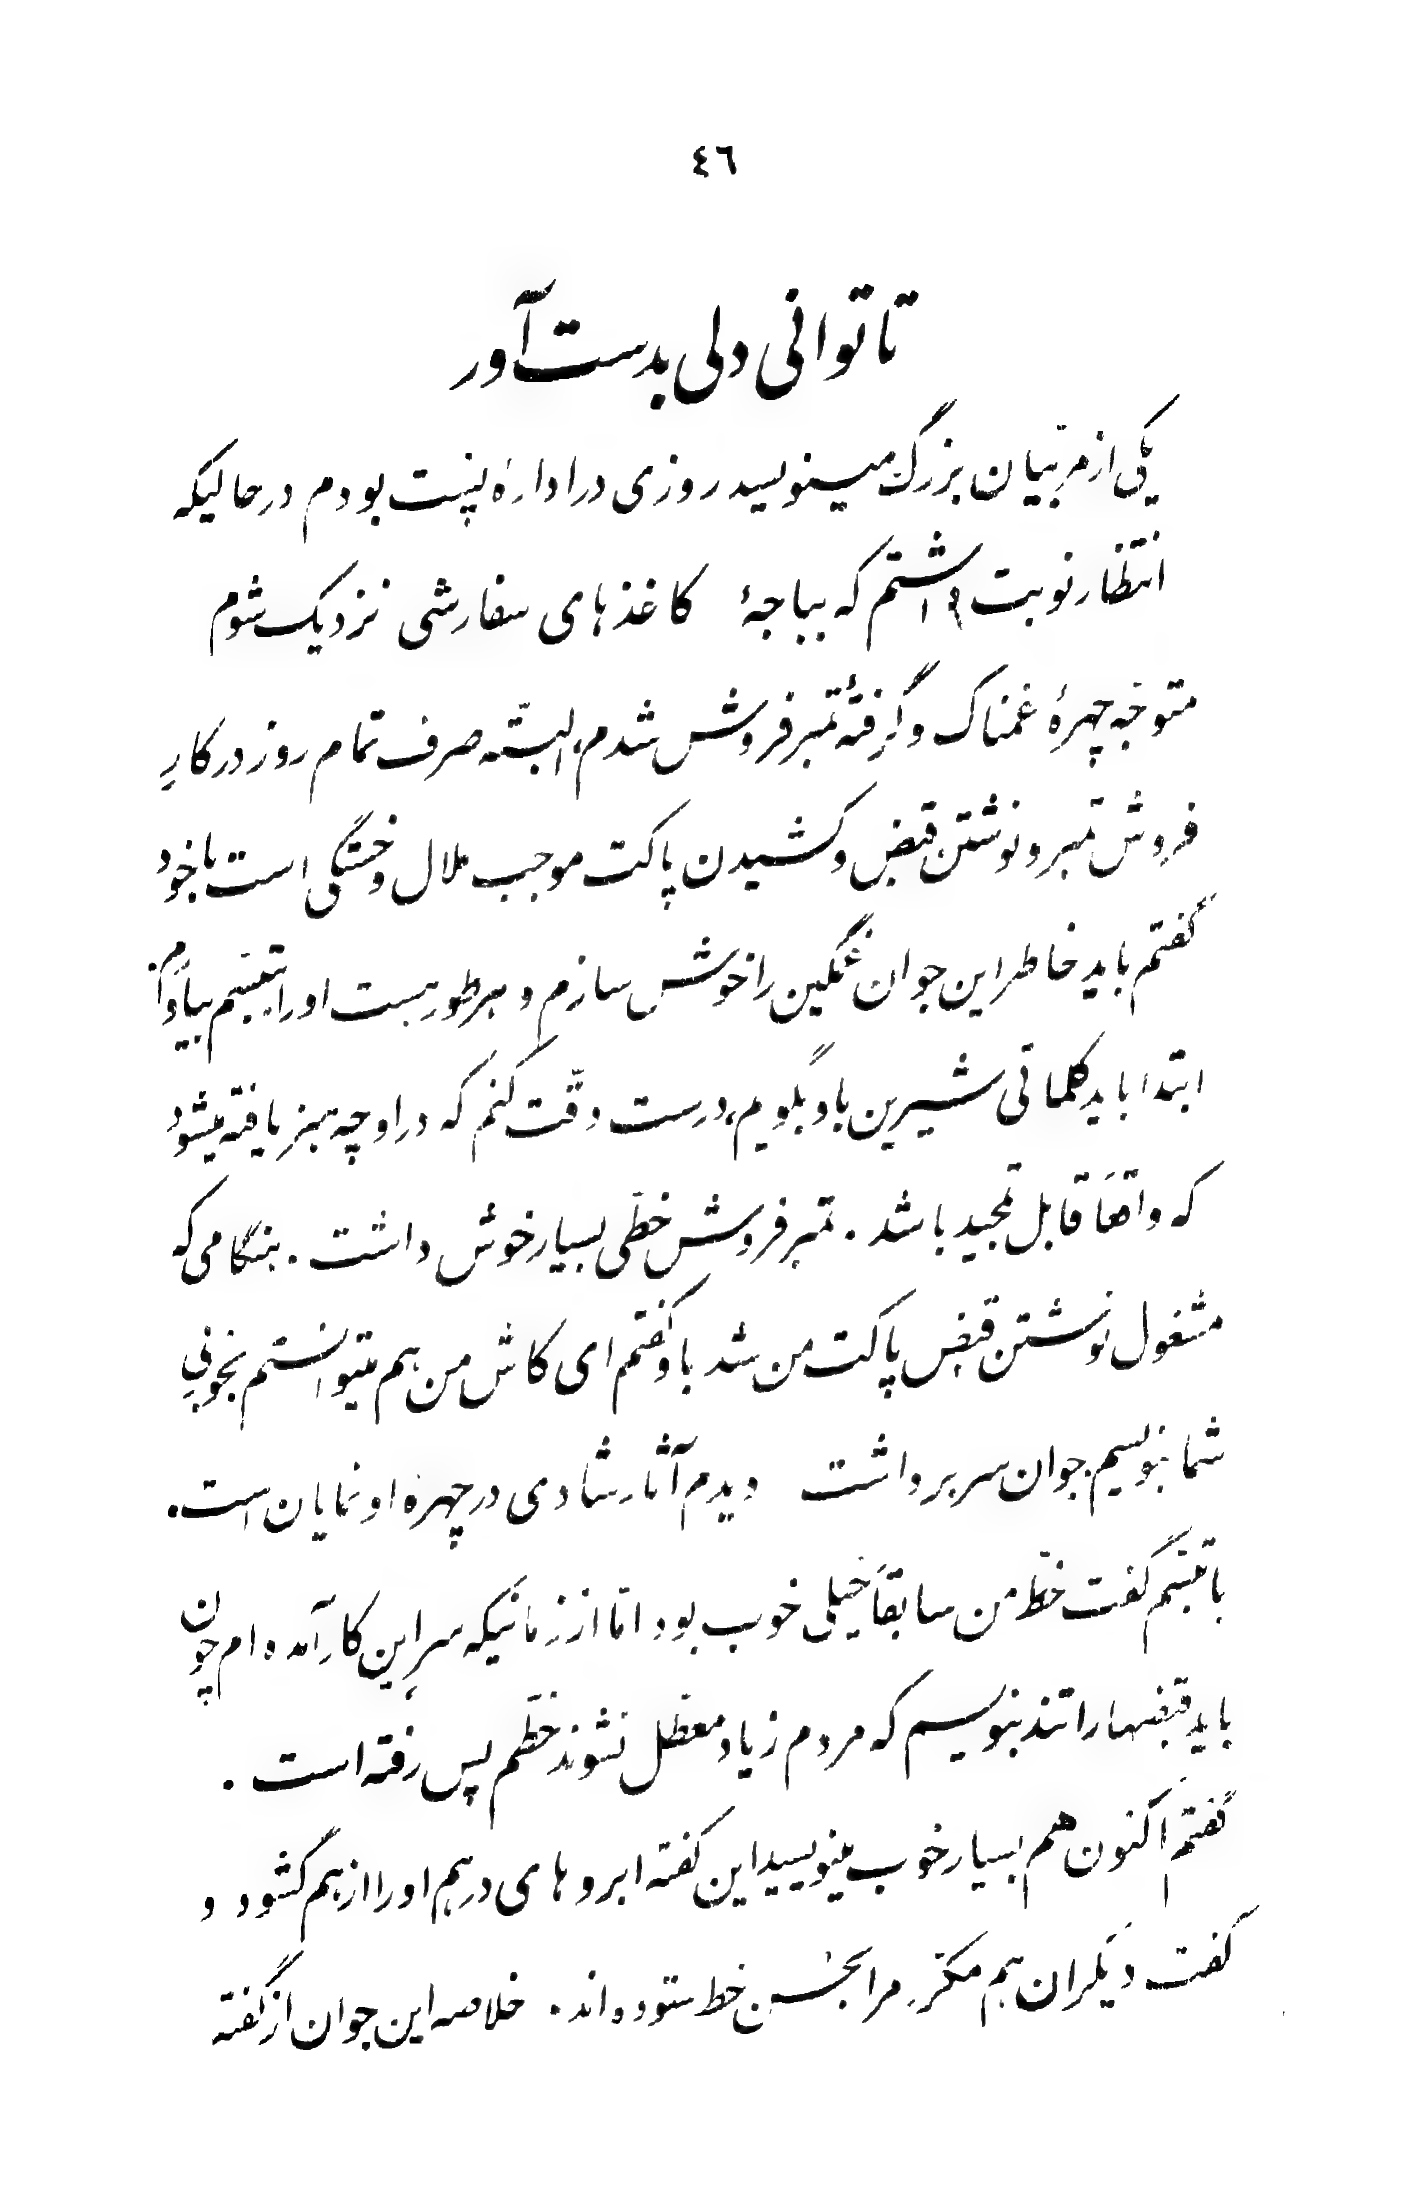 ٤٦
تا توانی دلی بدست آور
یکی از مربّیان بزرگ مینویسد روزی در ادارهٔ پُست بودم درحالیکه
انتظار نوبت داشتم که بباجهٔ کاغذهای سفارشی نزدیک شوم
متوجّه چهرهٔ غمناک و گرفتهٔ تمبر فروش شدم، البتّه صرف تمام روز در کارِ
فروش تمبر و نوشتن قبض و کشیدن پاکت موجب ملال و خستگی است با خود
گفتم باید خاطر این جوان غمگین را خوش سازم و هرطور هست او را بتبسّم بیاورم.
ابتدا باید کلماتی شیرین باو بگویم، درست دقّت کنم که در او چه هنر یافته میشود
که واقعاً قابل تمجید باشد. تمبر فروش خطّی بسیار خوش داشت. هنگامی که
مشغول نوشتن قبض پاکت من شد باو گفتم ای کاش من هم میتوانستم بخوبیِ
شما بنویسم. جوان سر برداشت دیدم آثار شادی در چهرهٔ او نمایان است.
با تبسّم گفت خطّ من سابقاً خیلی خوب بود امّا از زمانیکه سرِ این کار آمده ام چون
باید قبضها را تند بنویسم که مردم زیاد معطّل نشوند خطّم پس رفته است.
گفتم اکنون هم بسیار خوب مینویسید این گفته ابروهای درهم او را از هم گشود و
گفت دیگران هم مکرّر مرا بحُسن خط ستوده اند. خلاصه این جوان از گفته